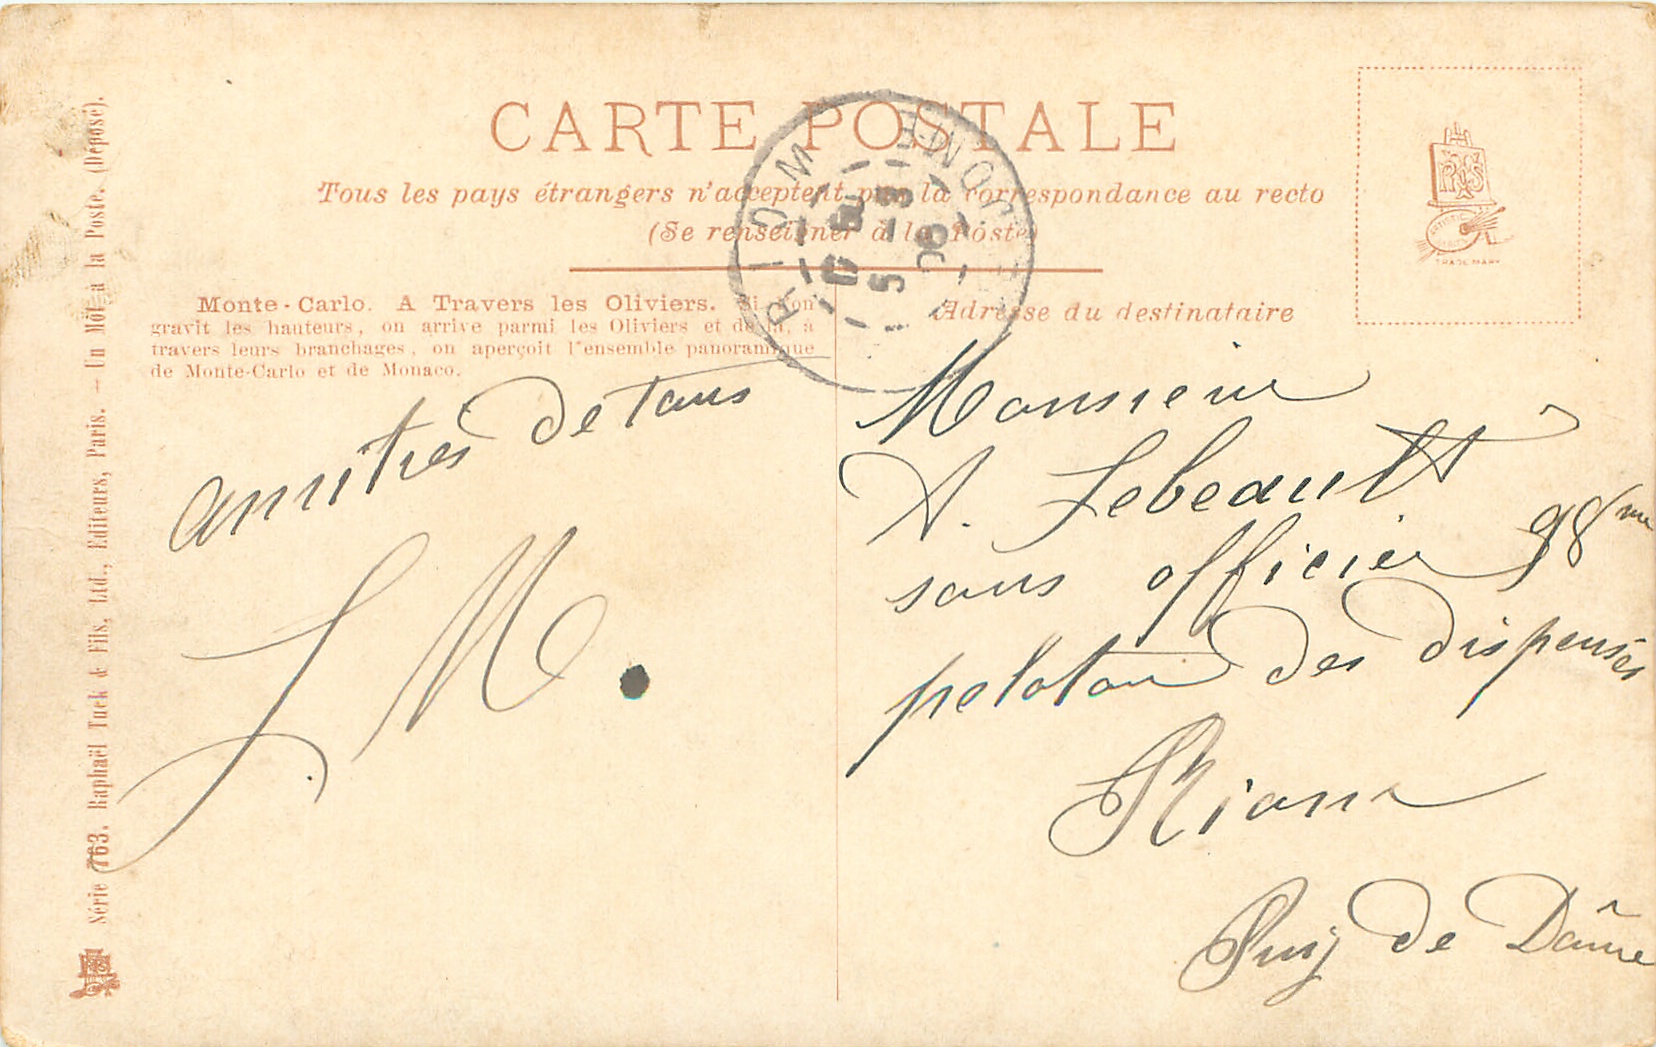 CARTE POSTALE
Tous les pays étrangers n'acceptent pas la correspondance au recto
(Se renseigner à la Poste)
Monte-Carlo. A Travers les Oliviers. Si l'on
gravit les hauteurs, on arrive parmi les Oliviers et de là, à
travers leurs branchages, on aperçoit l'ensemble panoramique
de Monte-Carlo et de Monaco.
amitiés de tous
LM.
Adresse du destinataire
Monsieur
A. Lebeault
sous officier 98me
peloton des dispensés
Riom
Puy de Dôme
RIOM
5 -3
06
ARTISTIC
TRADE MARK
Série 763. Raphaël Tuck & Fils, Ltd., Editeurs, Paris. — Un Mot à la Poste. (Déposé).